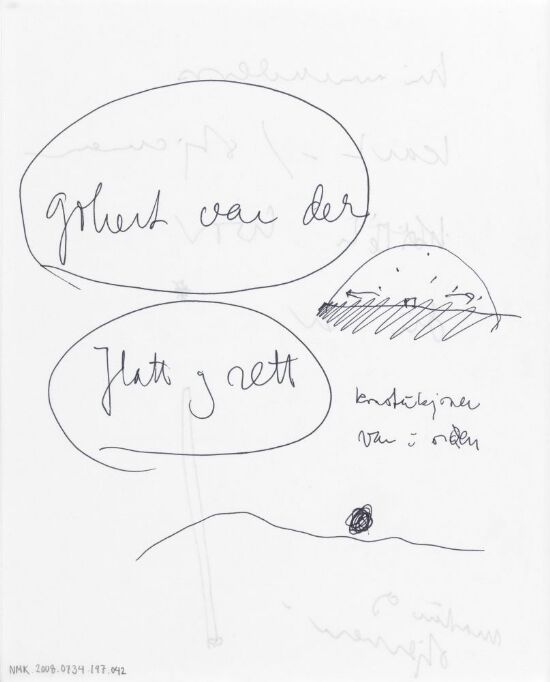 gohert van der
flatt og rett
konstruksjonen
var i orden
NMK.2008.0734.197.042